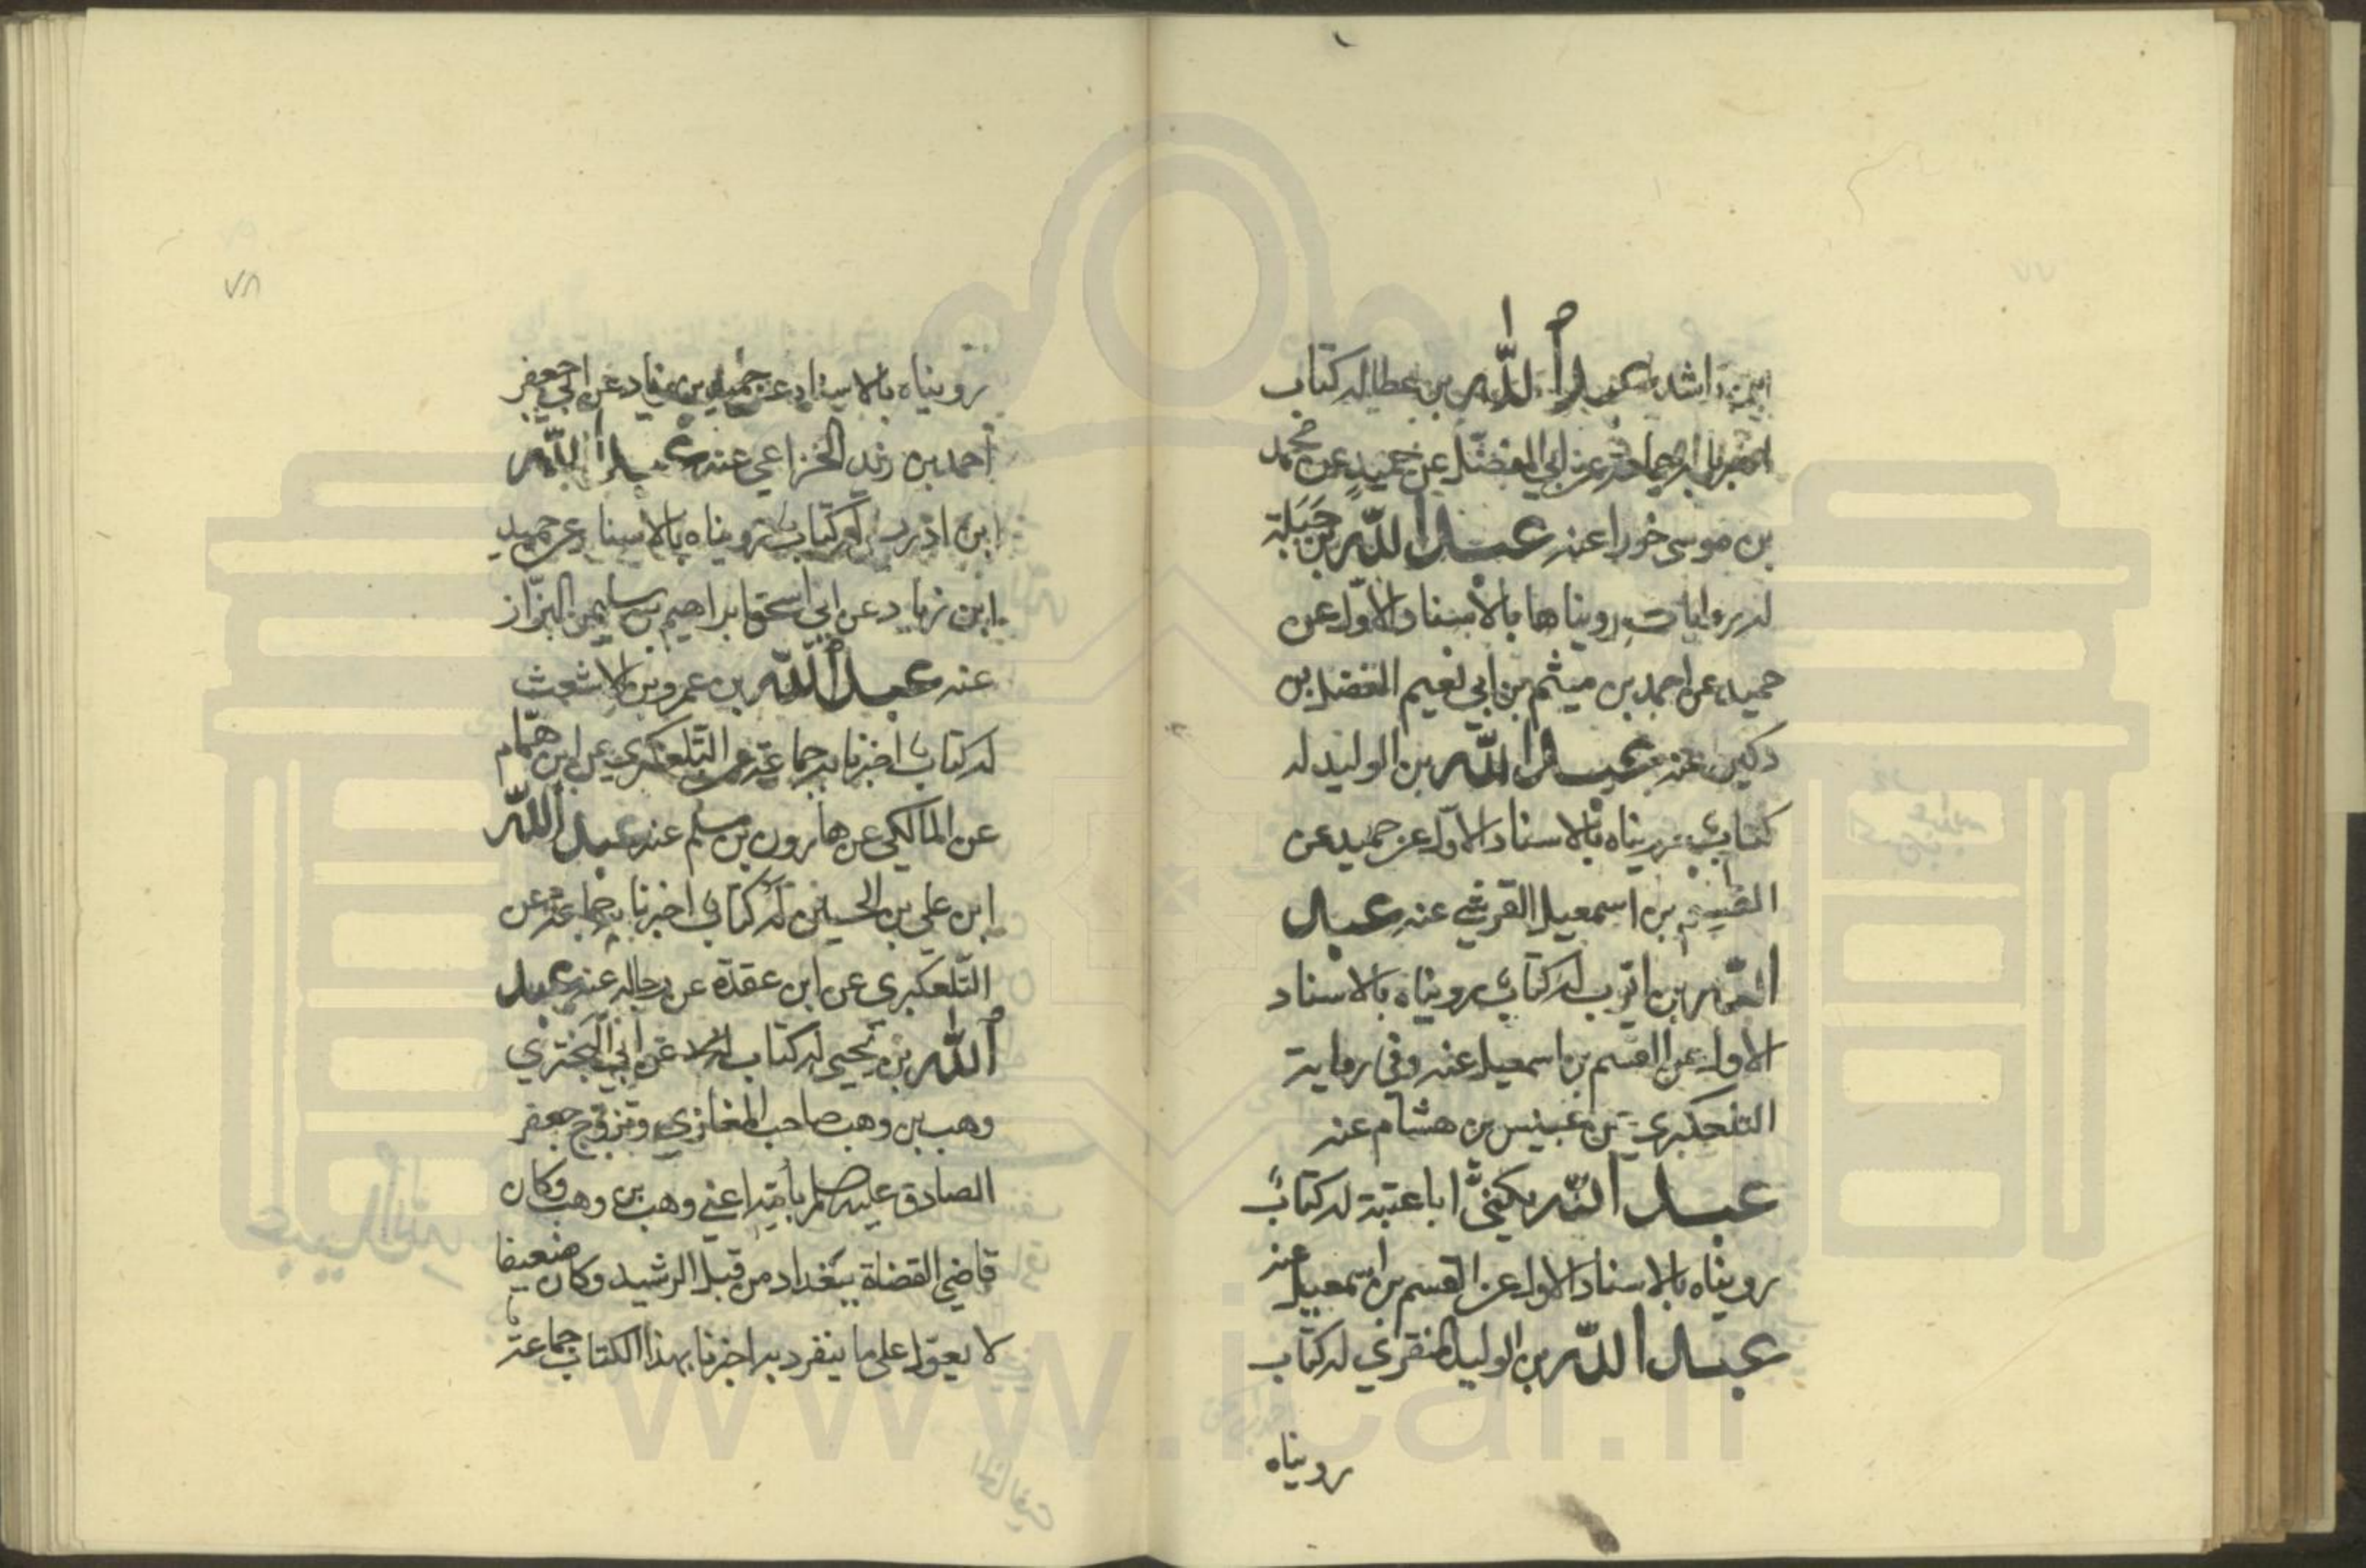 بن راشد عبد الله بن عطا له كتاب
اخبرنا به جماعة عن ابي المفضّل عن حميد عن محمد
بن موسى خورا عنه عبد الله بن جَبَلة
له روايات رويناها بالاسناد الاوّل عن
حميد عن احمد بن ميثم بن ابي نعيم الفضل بن
دكين عنه عبد الله بن الوليد له
كتاب رويناه بالاسناد الاوّل عن حميد عن
القسم بن اسمعيل القرشي عنه عبد
الله بن ايّوب له كتاب رويناه بالاسناد
الاول عن القسم بن اسمعيل عنه وفي رواية
التلعكبري عن عبيس بن هشام عنه
عبد الله يكنّى ابا عتبة له كتابٌ
رويناه بالاسناد الاول عن القسم بن اسمعيل عنه
عبد الله بن الوليد المنقري له كتاب
رويناه
رويناه بالاسناد عن حميد بن زياد عن ابي جعفر
احمد بن زيد الخزاعي عنه عبد الله
ابن ادريس له كتاب رويناه بالاسناد عن حميد
ابن زياد عن ابي اسحق ابراهيم بن سليمن البزّاز
عنه عبد الله بن عمرو بن الاشعث
له كتاب اخبرنا به جماعة عن التلعكبري عن ابن همّام
عن المالكي عن هارون بن مسلم عنه عبد الله
ابن علي بن الحسين له كتاب اخبرنا به جماعة عن
التلعكبري عن ابن عقدة عن رجاله عنه عبد
الله بن يحيى له كتاب عن ابي البختري
وهب بن وهب صاحب المغازي وتزوّج جعفر
الصادق عليه بأمّه اعني وهب بن وهب وكان
قاضي القضاة ببغداد من قبل الرشيد وكان ضعيفا
لا يعوّل على ما ينفرد به اخبرنا بهذا الكتاب جماعة
٧٨
www.icar.ir